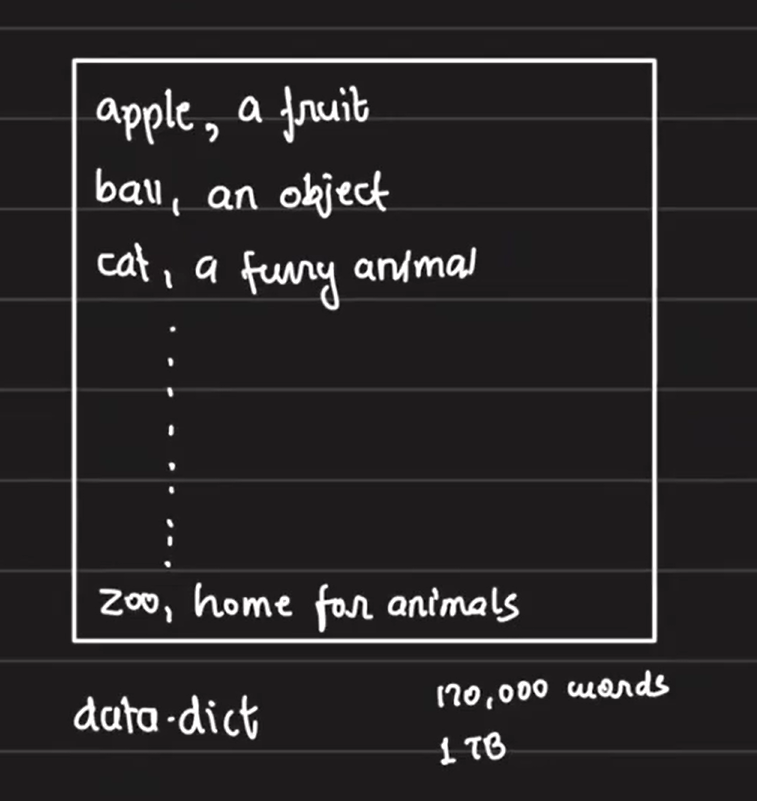 apple, a fruit
ball, an object
cat, a furry animal
zoo, home for animals
data.dict
170,000 words
1 TB